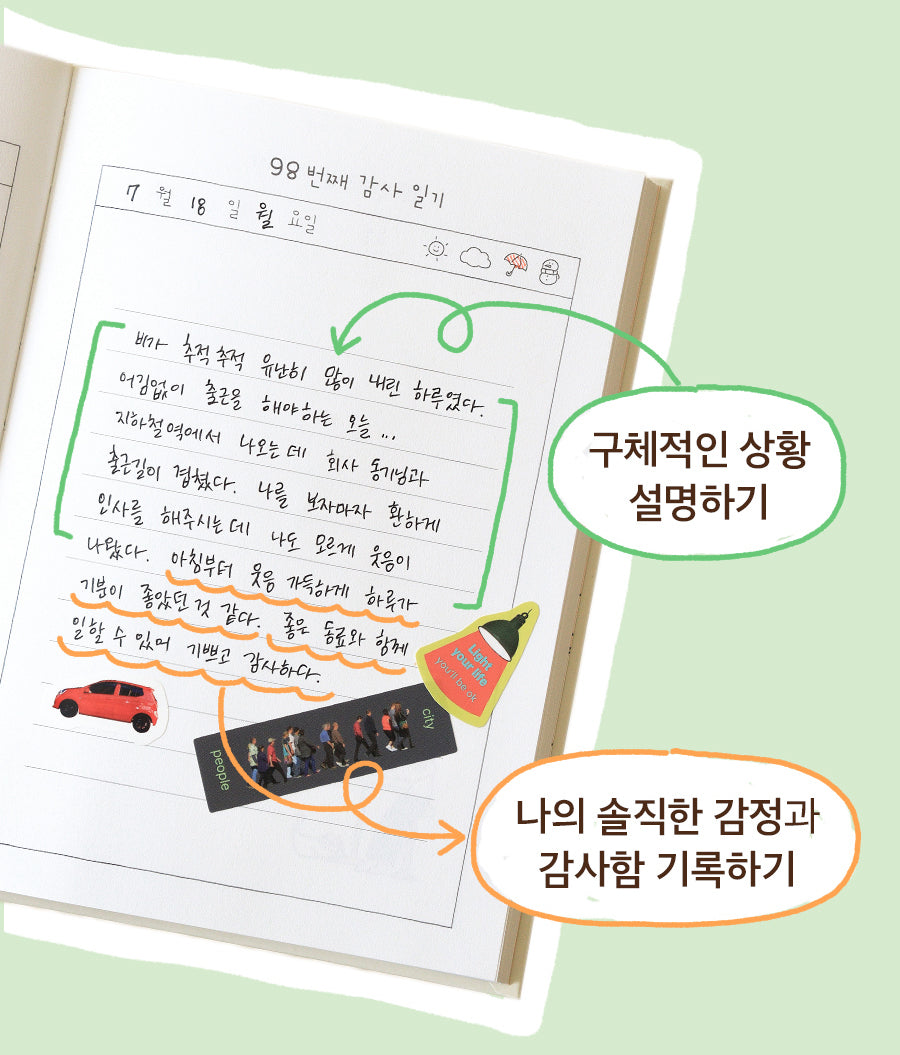 98 번째 감사 일기
7 월 18 일 월 요일
비가 추적추적 유난히 많이 내린 하루였다.
어김없이 출근을 해야하는 오늘...
지하철역에서 나오는데 회사 동기님과
출근길이 겹쳤다. 나를 보자마자 환하게
인사를 해주시는데 나도 모르게 웃음이
나왔다. 아침부터 웃음 가득하게 하루가
기분이 좋았던 것 같다. 좋은 동료와 함께
일할 수 있어 기쁘고 감사하다.
구체적인 상황
설명하기
Light
your life
you'll be ok
city
people
나의 솔직한 감정과
감사함 기록하기